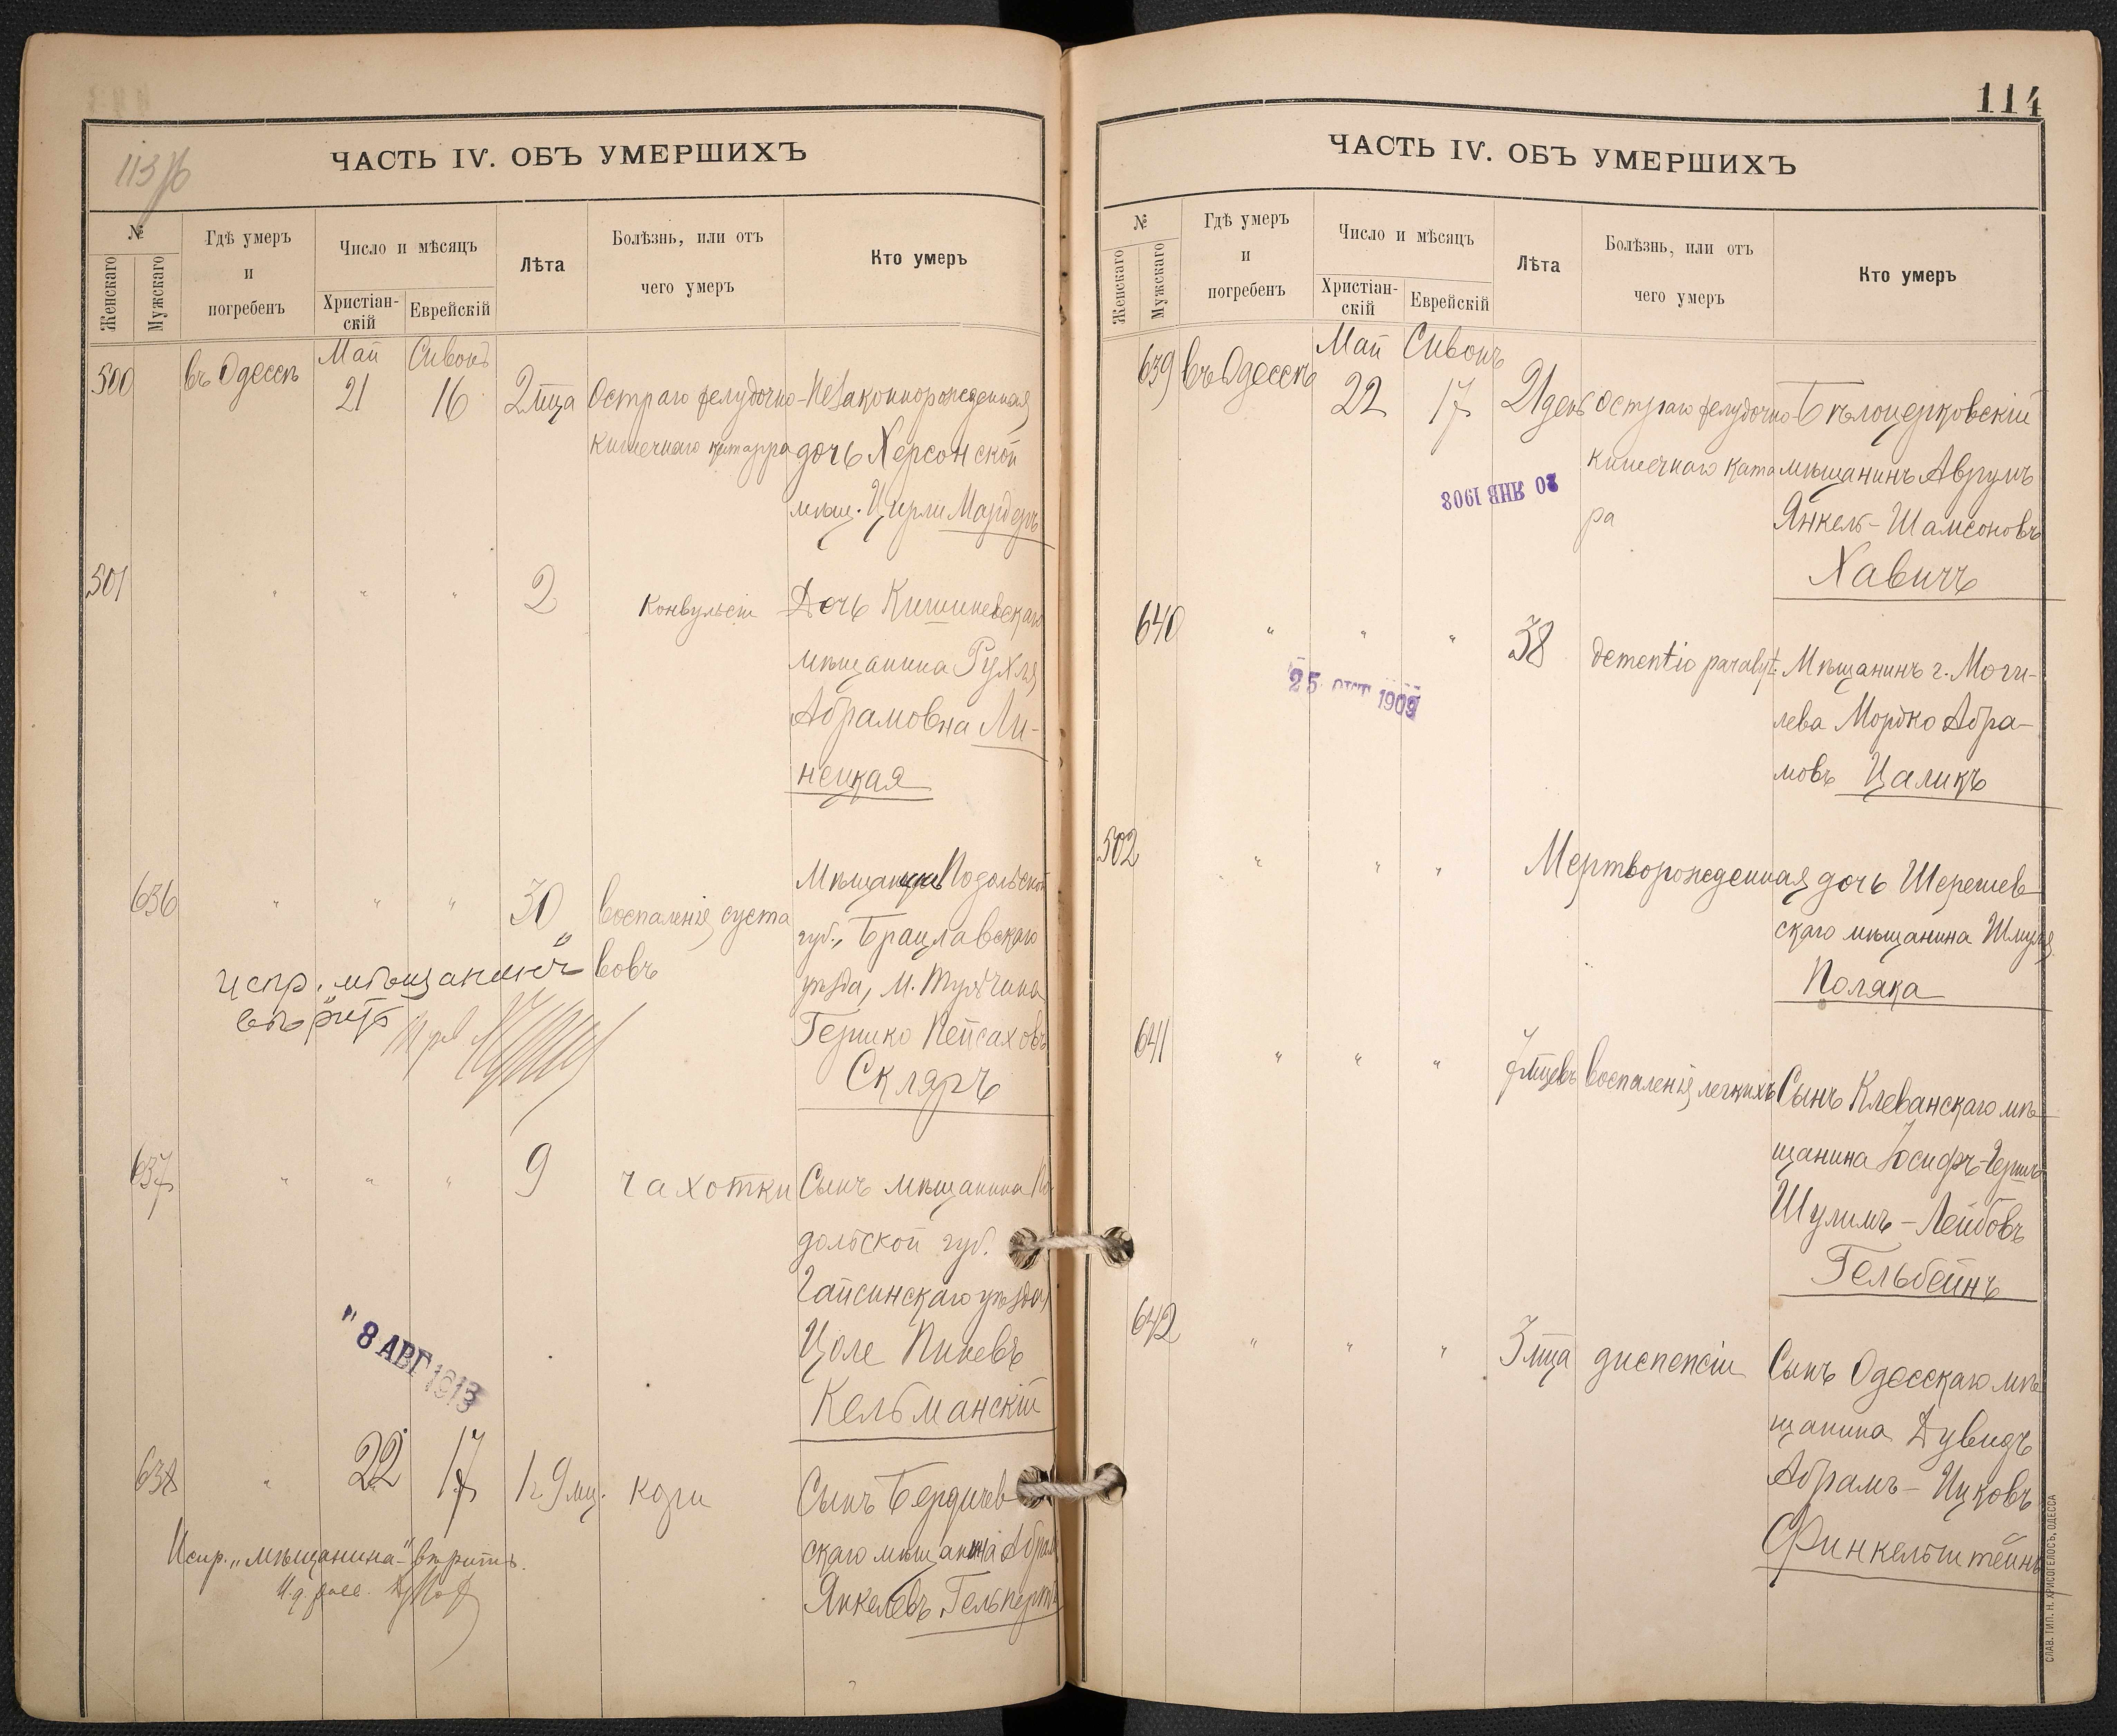 113 об
ЧАСТЬ IV. ОБЪ УМЕРШИХЪ
№
Женскаго
Мужскаго
Гдѣ умеръ
и
погребенъ
Число и мѣсяцъ
Христіан-
скій
Еврейскій
Лѣта
Болѣзнь, или отъ
чего умеръ
Кто умеръ
500 въ Одессѣ Май 21 Сивонъ 16 2 мца Остраго желудочно- Незаконнорожденная
кишечнаго катарра дочь Херсонской
мѣщ. Цирли Мардеръ
501 " " " 2 Конвульсіи Дочь Кишиневскаго
мѣщанина Рухля
Абрамовна Ли-
нецкая
636 " " " 30 воспаленія суста Мѣщанинъ Подольской
вовъ губ., Брацлавскаго
уѣзда, м. Тульчина
Гершко Пейсаховъ
Скляръ
испр. „мѣщанинъ"
вѣрить
637 " " " 9 чахотки Сынъ мѣщанина По
дольской губ.
Гайсинскаго уѣзда
Цоле Пиневъ
Кельманскій
" 8 АВГ 1913
638 " 22 17 1 г. 9 мц. кори Сынъ Бердичев
скаго мѣщанина Абрам
Янкелевъ Гельперт
Испр. „мѣщанина" вѣрить.
114
ЧАСТЬ IV. ОБЪ УМЕРШИХЪ
№
Женскаго
Мужскаго
Гдѣ умеръ
и
погребенъ
Число и мѣсяцъ
Христіан-
скій
Еврейскій
Лѣта
Болѣзнь, или отъ
чего умеръ
Кто умеръ
639 въ Одессѣ Май 22 Сивонъ 17 21 день Остраго желудочно Бѣлоцерковскій
кишечнаго ката мѣщанинъ Аврумъ
ра Янкель-Шамсоновъ
Хавичъ
20 ЯНВ 1908
640 " " " 38 dementio paralyt. Мѣщанинъ г. Моги-
лева Мордко Абра-
мовъ Цаликъ
25 ОКТ 1909
502 " " " Мертворожденная дочь Шерешев
скаго мѣщанина Шмуля
Поляка
641 " " " 7 мцевъ воспаленія легкихъ Сынъ Клеванскаго мѣ
щанина Іосифъ-Гершъ
Шулимъ-Лейбовъ
Гельбейнъ
642 " " " 3 мца диспепсіи Сынъ Одесскаго мѣ
щанина Дувидъ
Абрамъ-Ицковъ
Финкельштейнъ
СЛАВ. ТИП. Н. ХРИСОГЕЛОСЪ, ОДЕССА